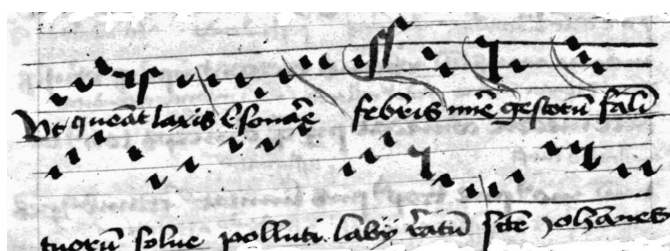 Ut queāt laxis resonāre febris mīre gestorū famlī
tuorū solue polluti labij reatū scte Johānes